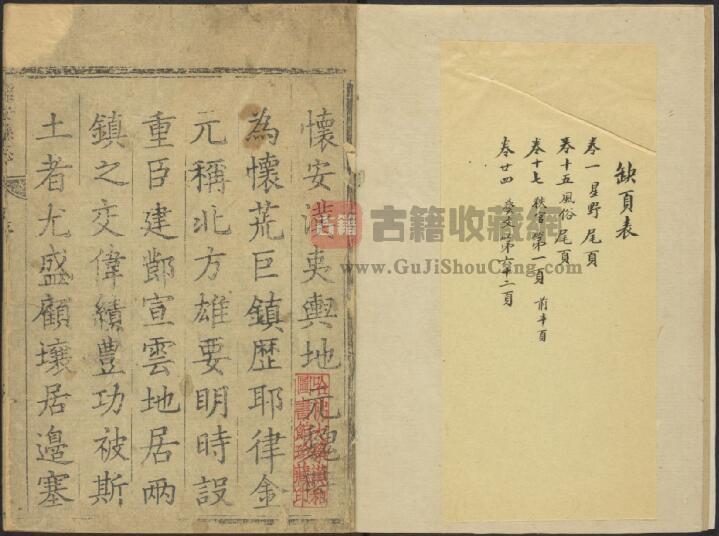 缺頁表
卷一 星野 尾頁
卷十五 風俗 尾頁
卷十七 秩官 第一頁 前半頁
卷廿四 藝文 第六十二頁
懷安漢夷輿地元魏
為懷荒巨鎮歷耶律金
元稱北方雄要明時設
重臣建鄭宣雲地居兩
鎮之交偉績豐功被斯
土者尤盛顧壤居邊塞
哈佛大學漢和
圖書館珍藏印
古籍 古籍收藏網
www.GuJiShouCang.com